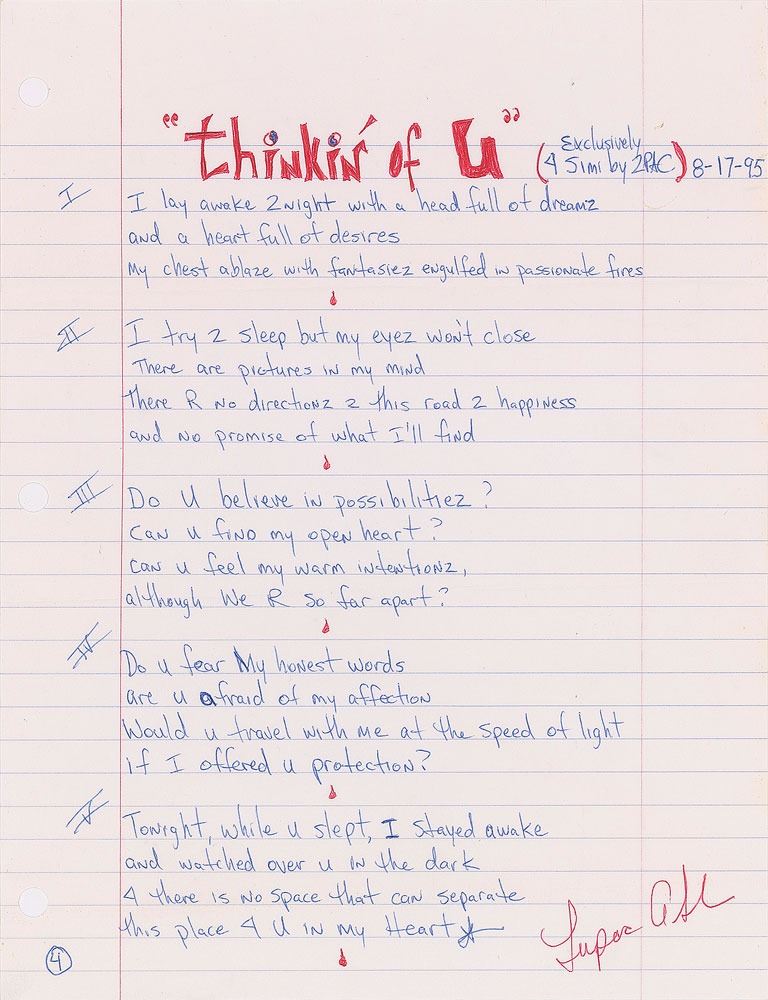 "thinkin' of U"
(Exclusively
4 Simi by 2PAC) 8-17-95
I
I lay awake 2night with a head full of dreamz
and a heart full of desires
My chest ablaze with fantasiez engulfed in passionate fires
II
I try 2 sleep but my eyez won't close
There are pictures in my mind
There R No directionz 2 this road 2 happiness
and no promise of what I'll find
III
Do U believe in possibilitiez?
Can u find my open heart?
Can u feel my warm intentionz,
although We R so far apart?
IV
Do u fear My honest words
are u afraid of my affection
Would u travel with me at the speed of light
if I offered u protection?
V
Tonight, while u slept, I stayed awake
and watched over u in the dark
4 there is no space that can separate
this place 4 U in my Heart
4